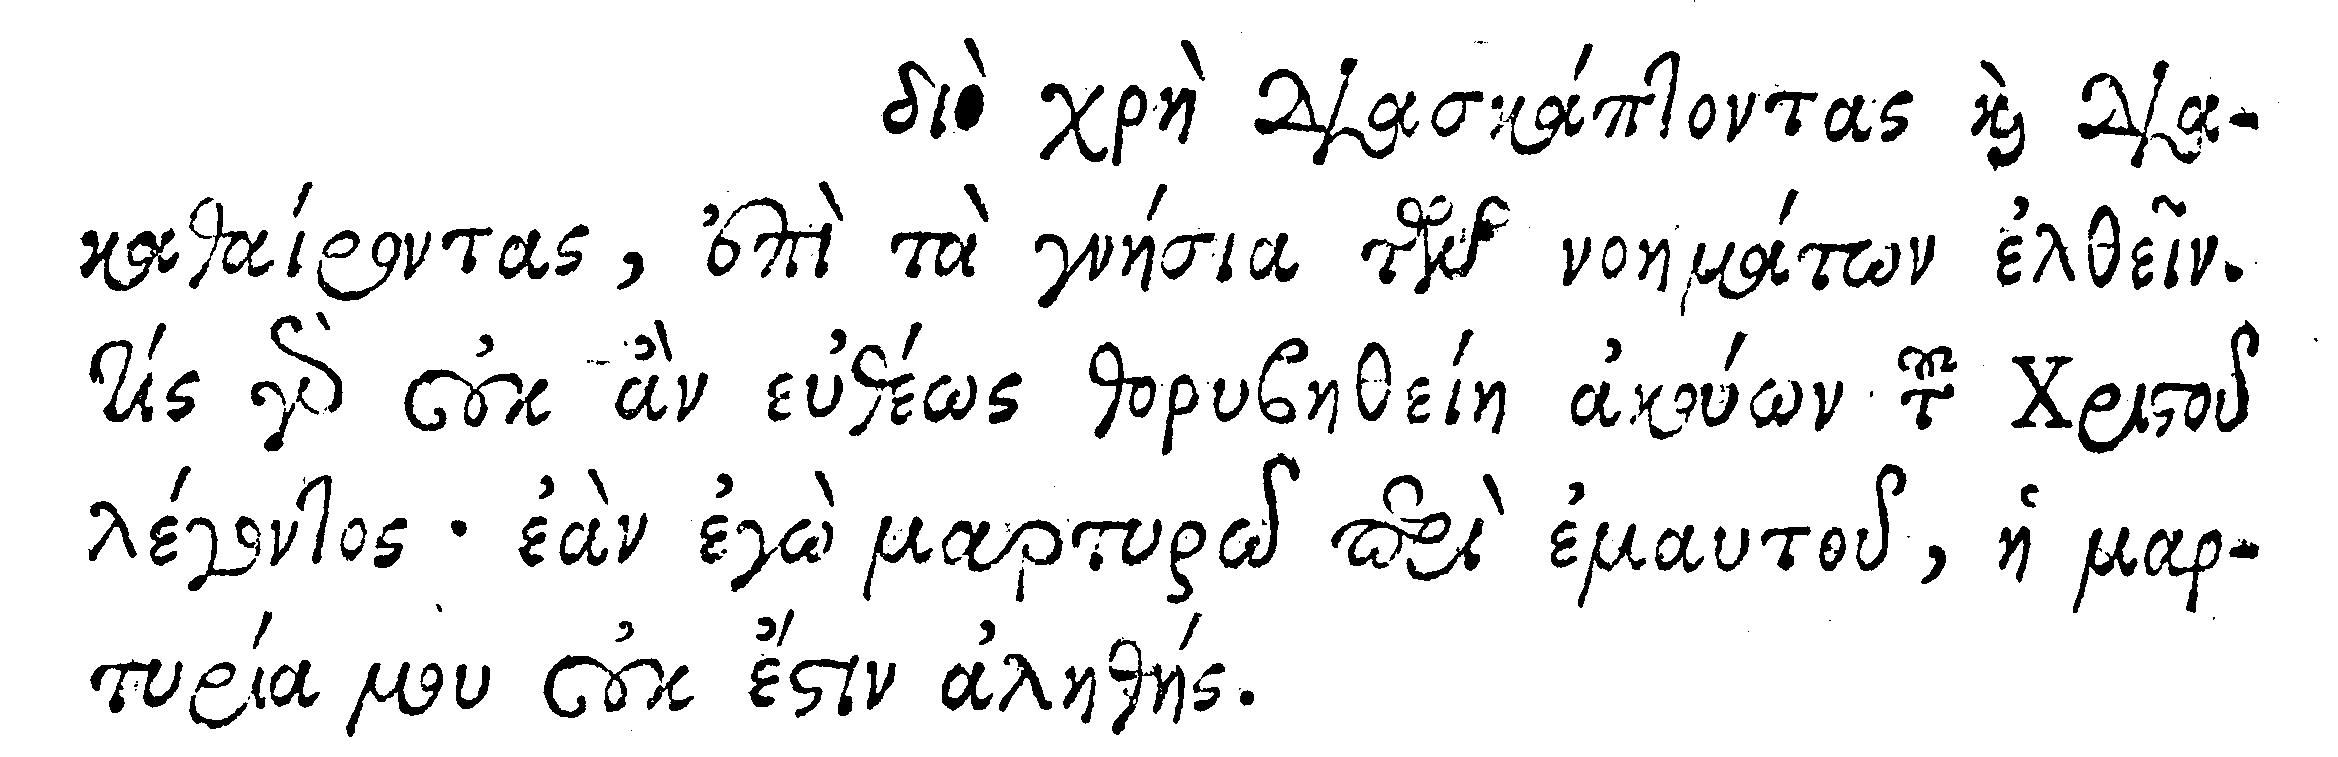 διὸ χρὴ διασκάπτοντας καὶ δια-
καθαίροντας, ἐπὶ τὰ γνήσια τῶν νοημάτων ἐλθεῖν.
τίς γὰρ οὐκ ἂν εὐθέως θορυβηθείη ἀκούων τοῦ Χριστοῦ
λέγοντος· ἐὰν ἐγὼ μαρτυρῶ περὶ ἐμαυτοῦ, ἡ μαρ-
τυρία μου οὐκ ἔστιν ἀληθής.